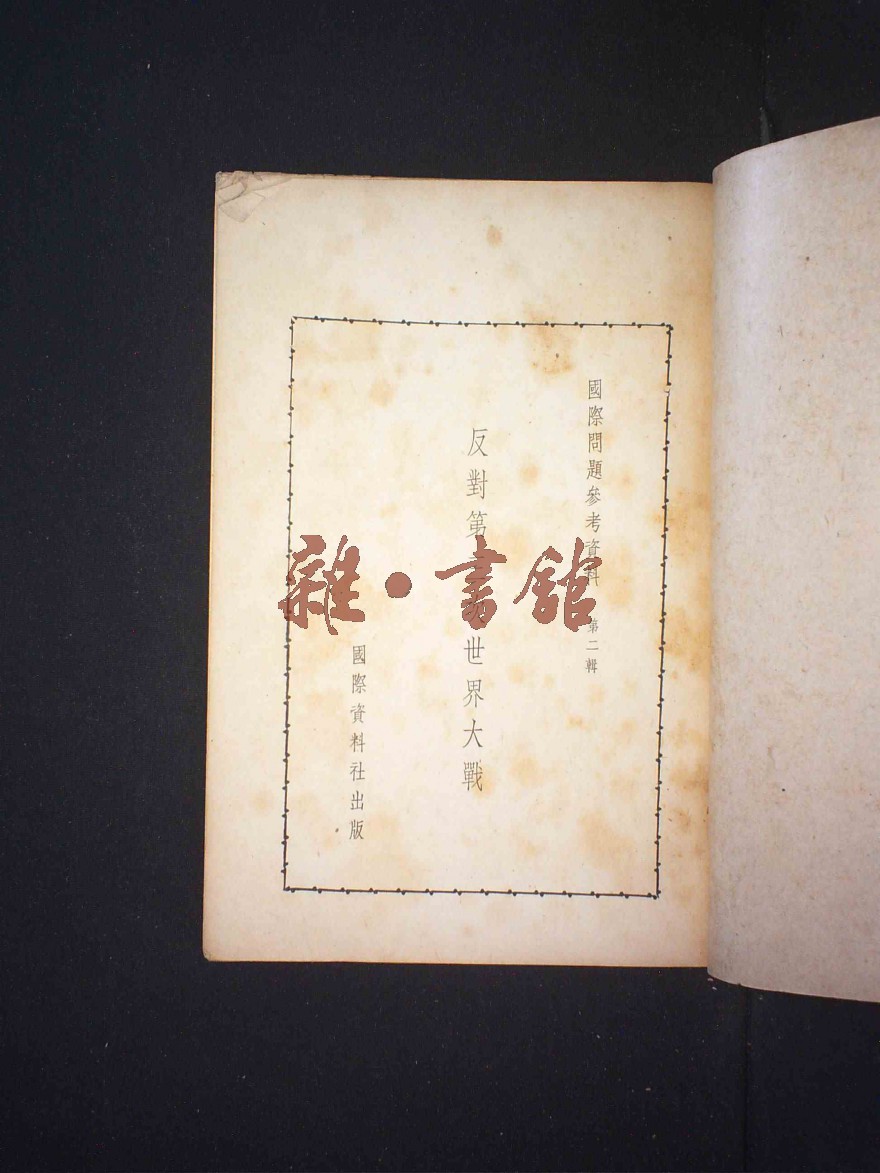 國際問題參考資料 第二輯
反對第 世界大戰
國際資料社出版
雜·書館